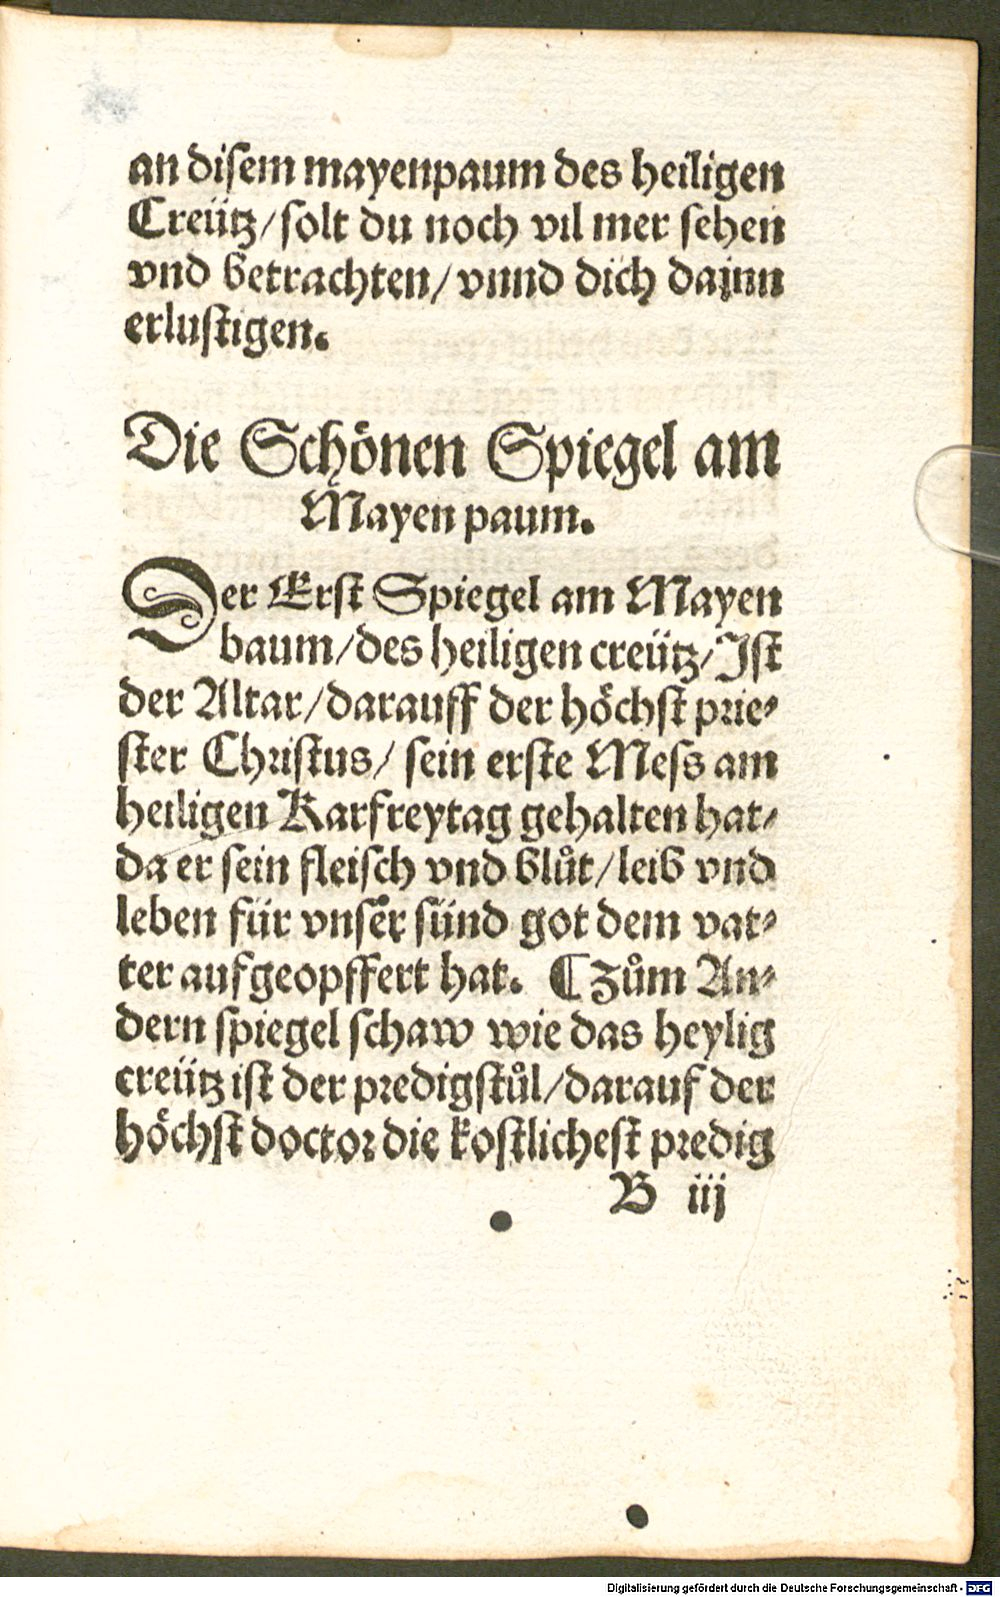 an disem mayenpaum des heiligen
Creütz/solt du noch vil mer sehen
vnd betrachten/vnnd dich dajnn
erlustigen.
Die Schönen Spiegel am
Mayen paum.
Der Erst Spiegel am Mayen
baum/des heiligen creütz/Ist
der Altar/darauff der höchst prie⸗
ster Christus/ sein erste Mess am
heiligen Karfreytag gehalten hat/
da er sein fleisch vnd blůt/leib vnd
leben für vnser sünd got dem vat⸗
ter aufgeopffert hat. ¶Zům An⸗
dern spiegel schaw wie das heylig
creütz ist der predigstůl/darauf der
höchst doctor die kostlichest predig
B iij
Digitalisierung gefördert durch die Deutsche Forschungsgemeinschaft - DFG